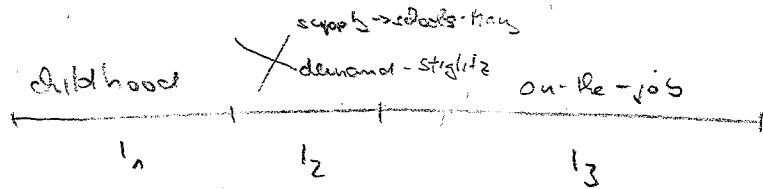 supply → schools -
demand - Stiglitz
childhood
on-the-job
l₁ l₂ l₃